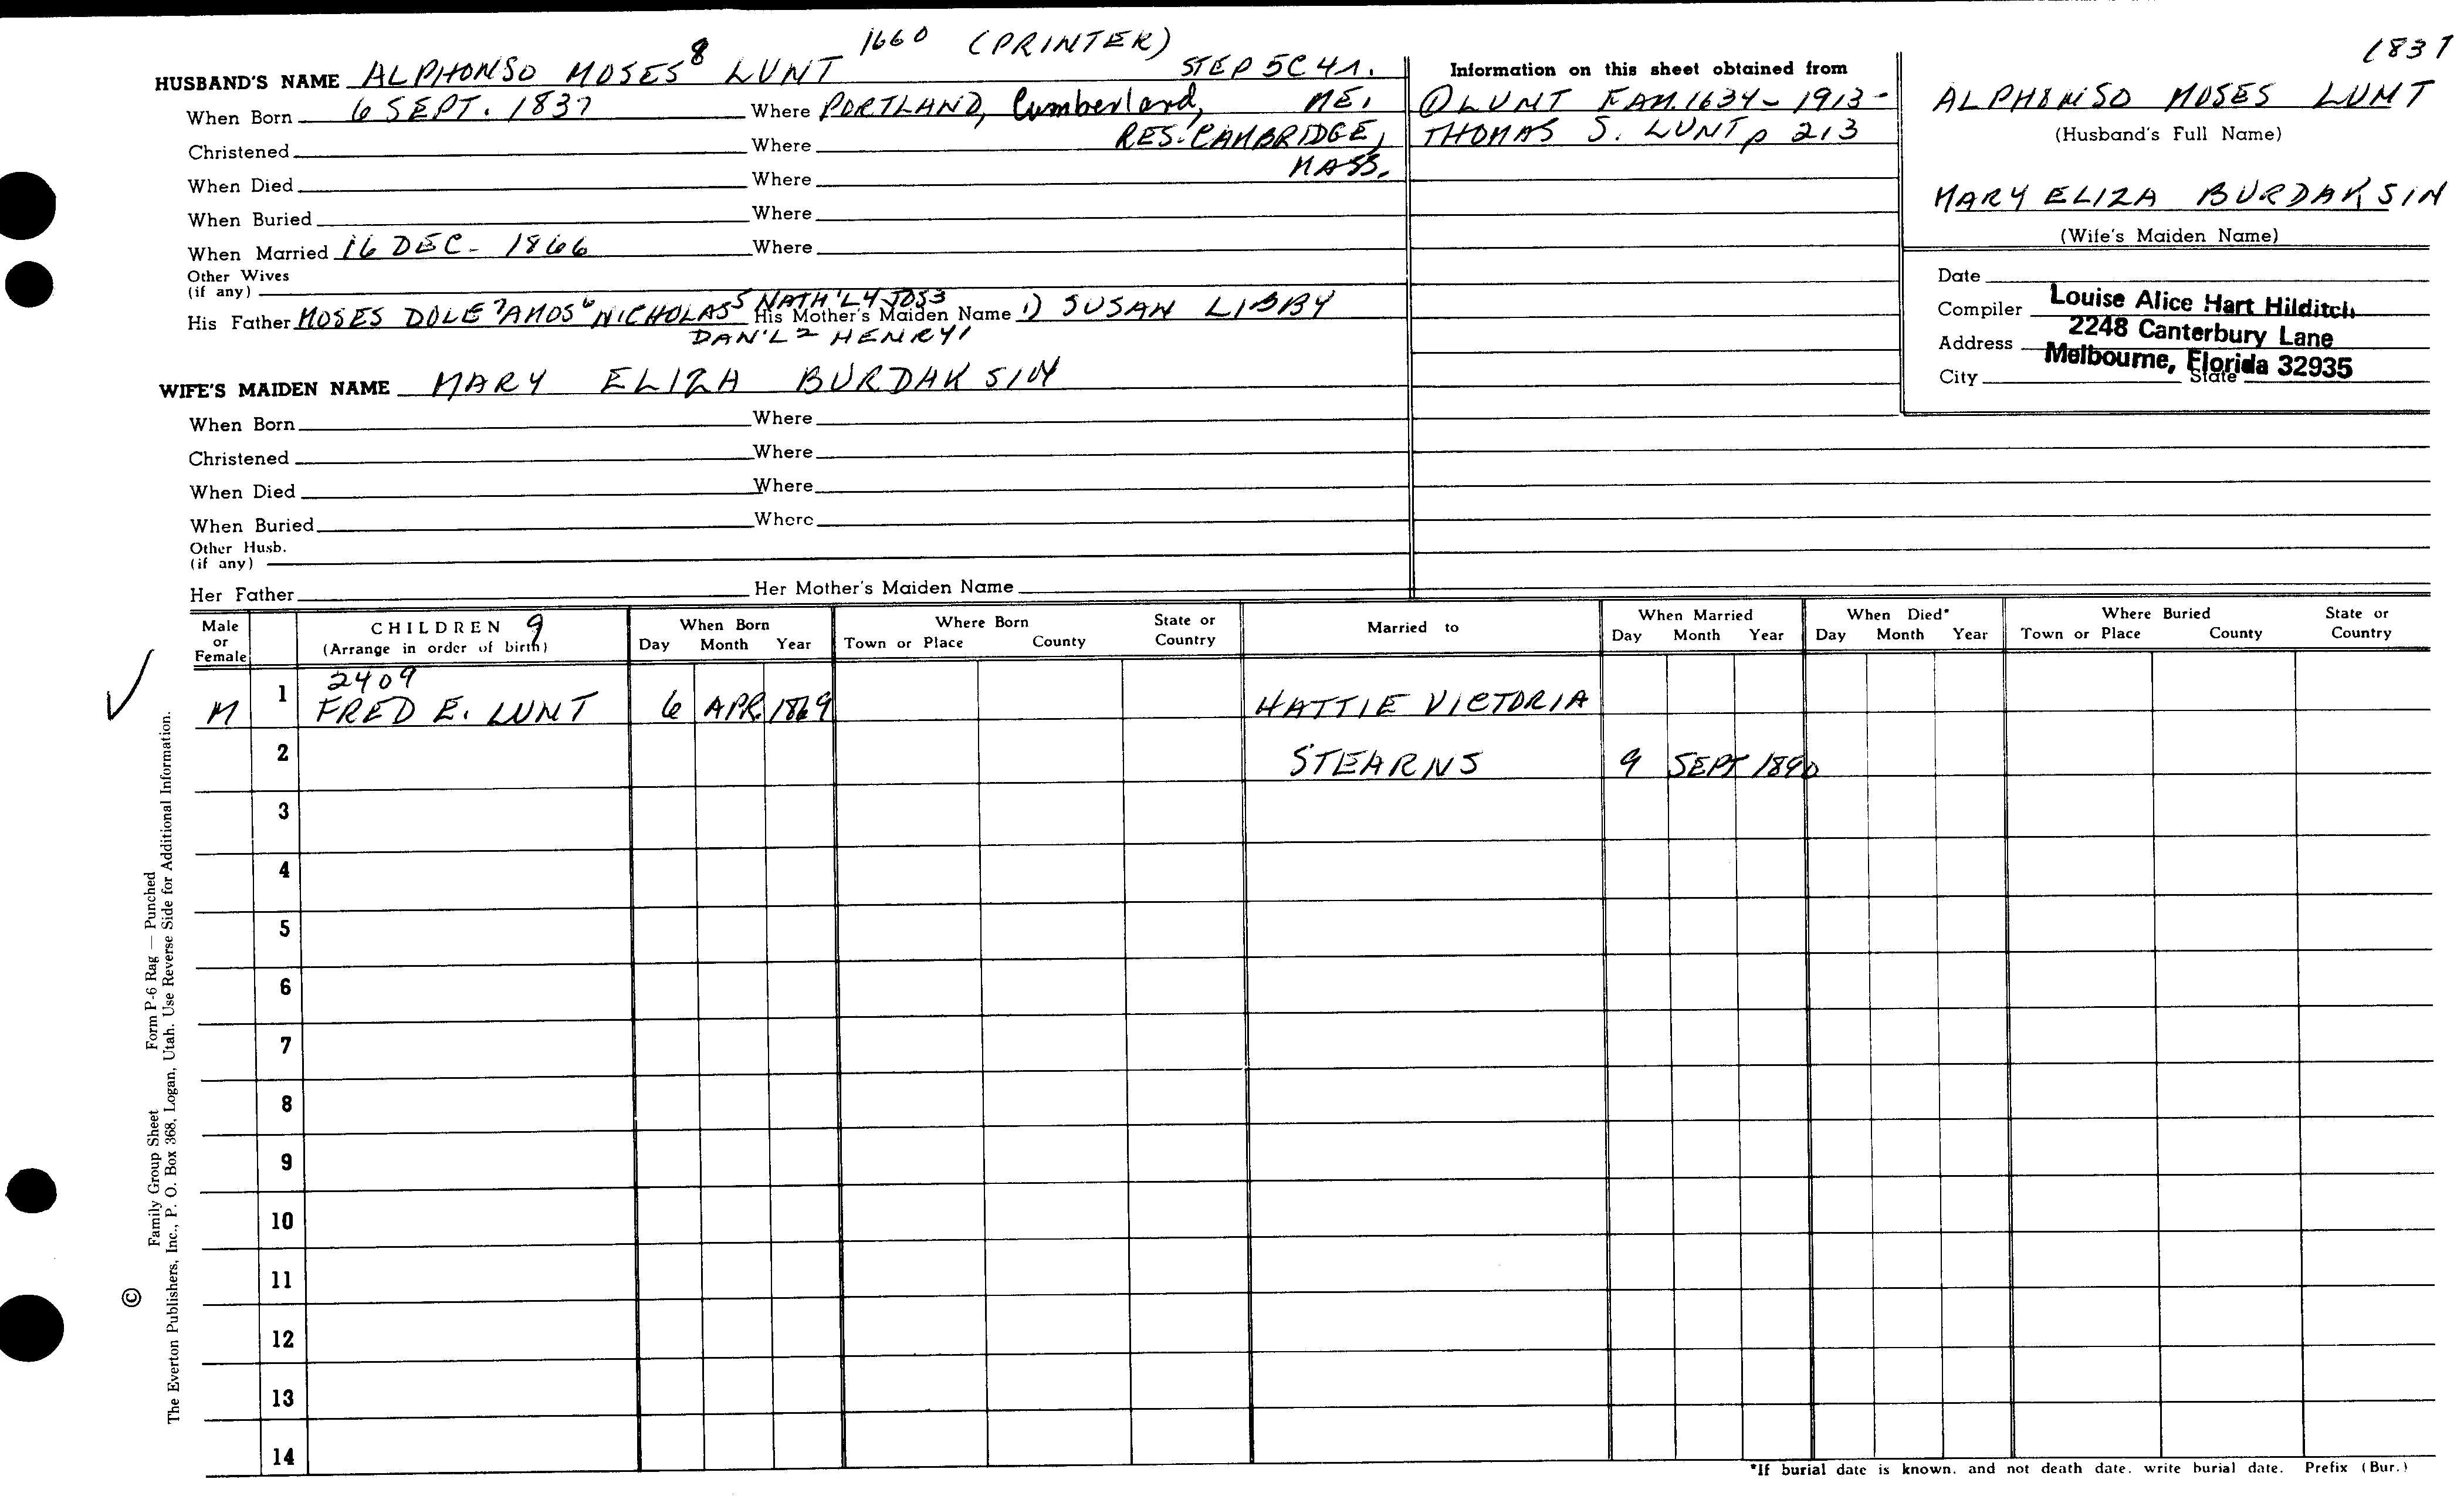 1660 (PRINTER)
1837
HUSBAND'S NAME ALPHONSO MOSES⁸ LUNT STEP 5C 41.
When Born 6 SEPT. 1837 Where PORTLAND, Cumberland, ME.
Christened Where RES. CAMBRIDGE,
MASS.
When Died Where
When Buried Where
When Married 16 DEC - 1866 Where
Other Wives
(if any)
His Father MOSES DOLE⁷ AMOS⁶ NICHOLAS⁵ NATH'L4 JOS3 His Mother's Maiden Name 1) SUSAN LIBBY
DAN'L2 HENRY1
WIFE'S MAIDEN NAME MARY ELIZA BURDAKSIN
When Born Where
Christened Where
When Died Where
When Buried Where
Other Husb.
(if any)
Her Father Her Mother's Maiden Name
Information on this sheet obtained from
① LUNT FAM. 1634 - 1913 -
THOMAS S. LUNT p 213
ALPHONSO MOSES LUNT
(Husband's Full Name)
MARY ELIZA BURDAKSIN
(Wife's Maiden Name)
Date
Compiler Louise Alice Hart Hilditch
Address 2248 Canterbury Lane
City Melbourne, Florida 32935
State
Male or Female CHILDREN 9 (Arrange in order of birth) When Born Day Month Year Where Born Town or Place County State or Country Married to When Married Day Month Year When Died* Day Month Year Where Buried Town or Place County State or Country
2409
M 1 FRED E. LUNT 6 APR. 1869 HATTIE VICTORIA
2 STEARNS 9 SEPT 1890
3
4
5
6
7
8
9
10
11
12
13
14
*If burial date is known, and not death date, write burial date. Prefix (Bur.)
© Family Group Sheet Form P-6 Rag — Punched
The Everton Publishers, Inc., P. O. Box 368, Logan, Utah. Use Reverse Side for Additional Information.